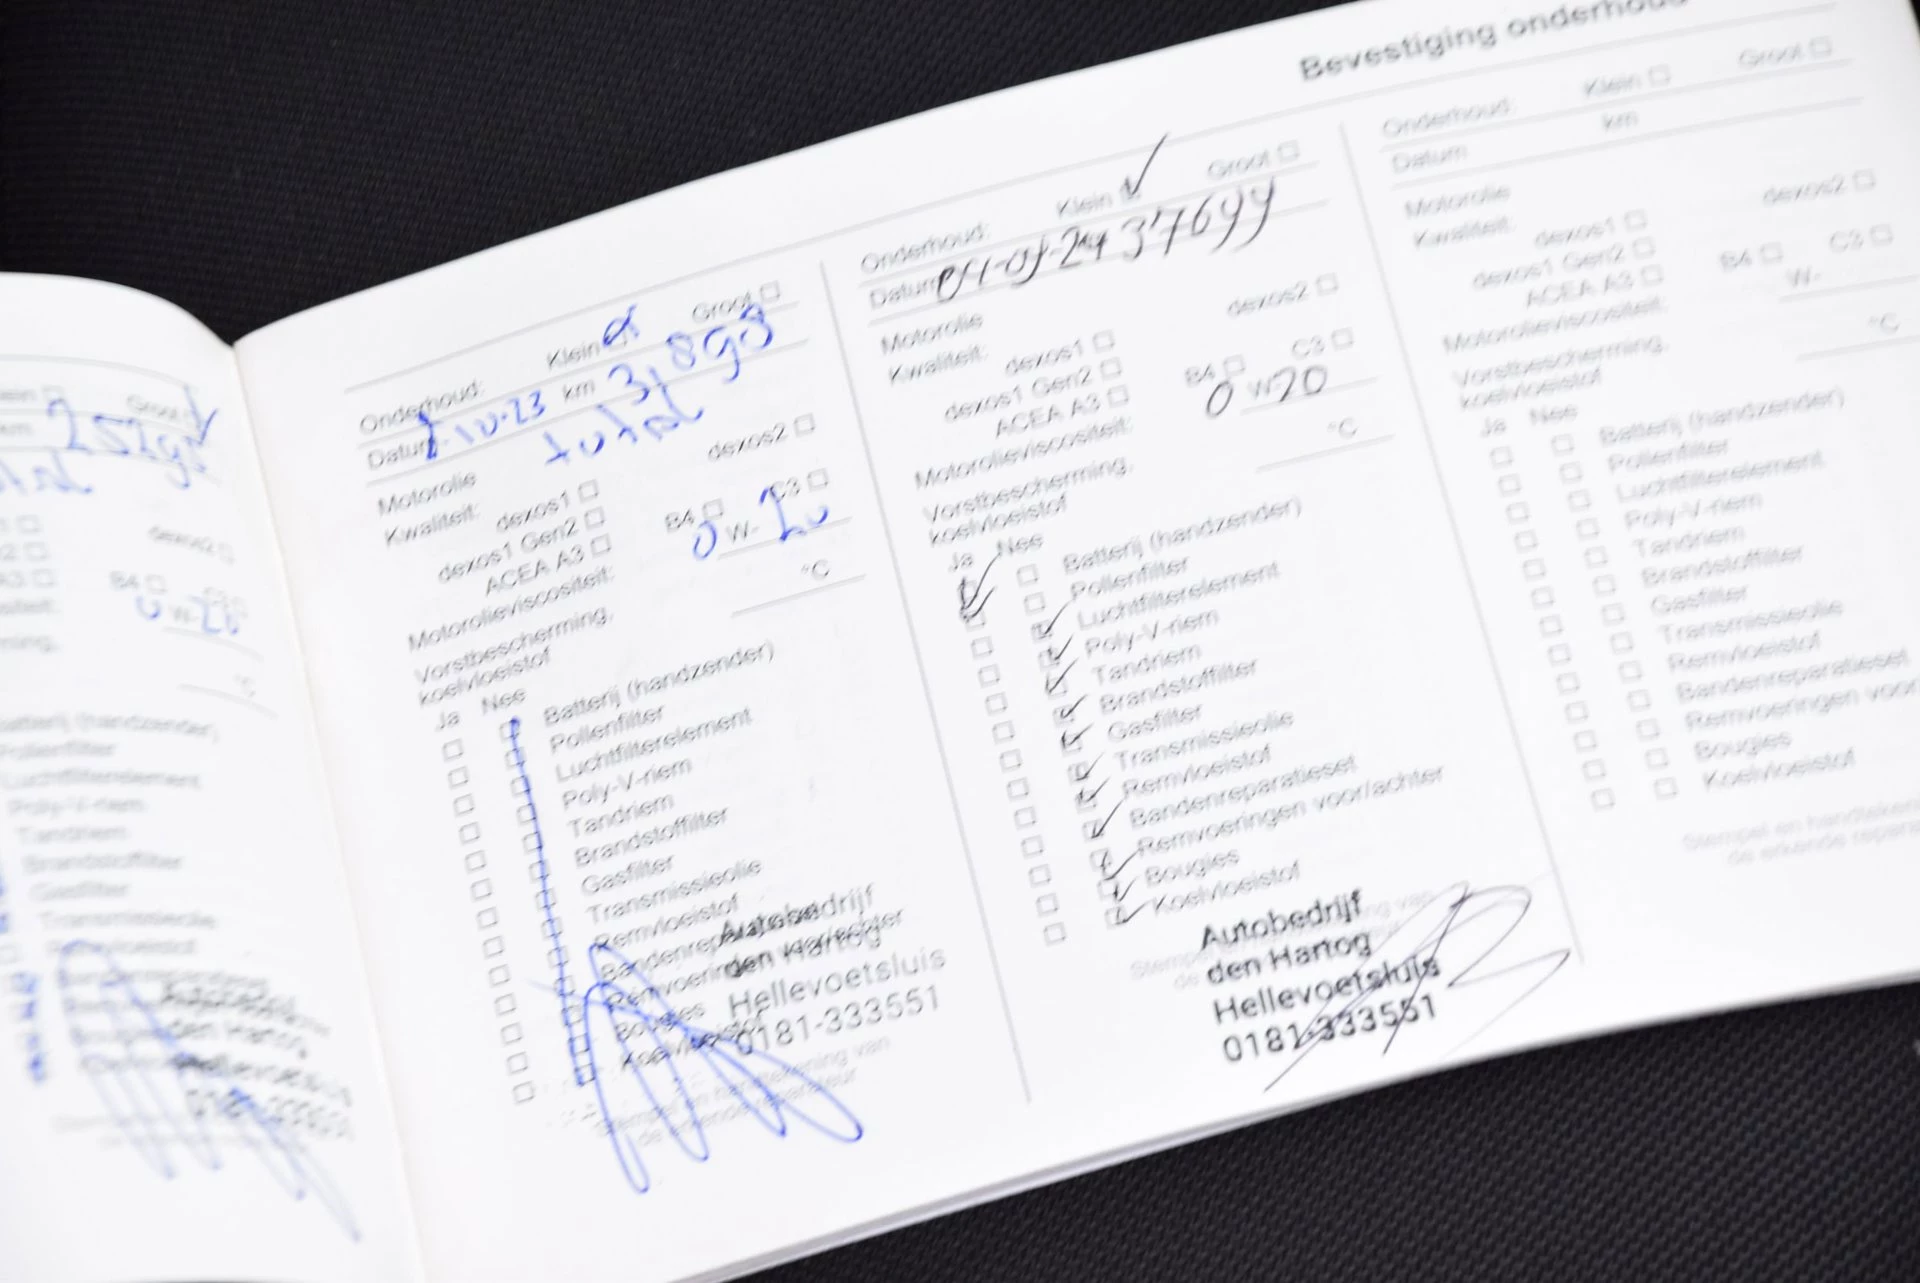 Bevestiging onderhoud
Groot
25298
B4
0 W-20
°C
Batterij (handzender)
Pollenfilter
Luchtfilterelement
Poly-V-riem
Tandriem
Brandstoffilter
Gasfilter
Transmissieolie
Remvloeistof
den Hartog
Onderhoud: Klein Groot
Datum -10-23 km 31898
total
Motorolie
Kwaliteit: dexos1 dexos2
dexos1 Gen2 B4 C3
ACEA A3
Motorolieviscositeit: 0 W-20
Vorstbescherming, °C
koelvloeistof
Ja Nee
Batterij (handzender)
Pollenfilter
Luchtfilterelement
Poly-V-riem
Tandriem
Brandstoffilter
Gasfilter
Transmissieolie
Remvloeistof
Bandenreparatieset
Remvoeringen voor/achter
Bougies
Koelvloeistof
Autobedrijf
den Hartog
Hellevoetsluis
0181-333551
Stempel en handtekening van
de erkende reparateur
Onderhoud: Klein Groot
Datum 24 37699
Motorolie
Kwaliteit: dexos1 dexos2
dexos1 Gen2 B4 C3
ACEA A3
Motorolieviscositeit: 0 W-20
Vorstbescherming, °C
koelvloeistof
Ja Nee
Batterij (handzender)
Pollenfilter
Luchtfilterelement
Poly-V-riem
Tandriem
Brandstoffilter
Gasfilter
Transmissieolie
Remvloeistof
Bandenreparatieset
Remvoeringen voor/achter
Bougies
Koelvloeistof
Autobedrijf
den Hartog
Hellevoetsluis
0181-333551
Onderhoud: Klein Groot
Datum km
Motorolie
Kwaliteit: dexos1 dexos2
dexos1 Gen2 B4 C3
ACEA A3
Motorolieviscositeit: W-
Vorstbescherming, °C
koelvloeistof
Ja Nee
Batterij (handzender)
Pollenfilter
Luchtfilterelement
Poly-V-riem
Tandriem
Brandstoffilter
Gasfilter
Transmissieolie
Remvloeistof
Bandenreparatieset
Remvoeringen voor
Bougies
Koelvloeistof
Stempel en handteken
de erkende repara